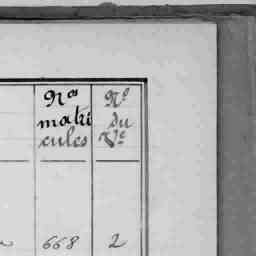 Nos matri cules
No du Ve
668 2